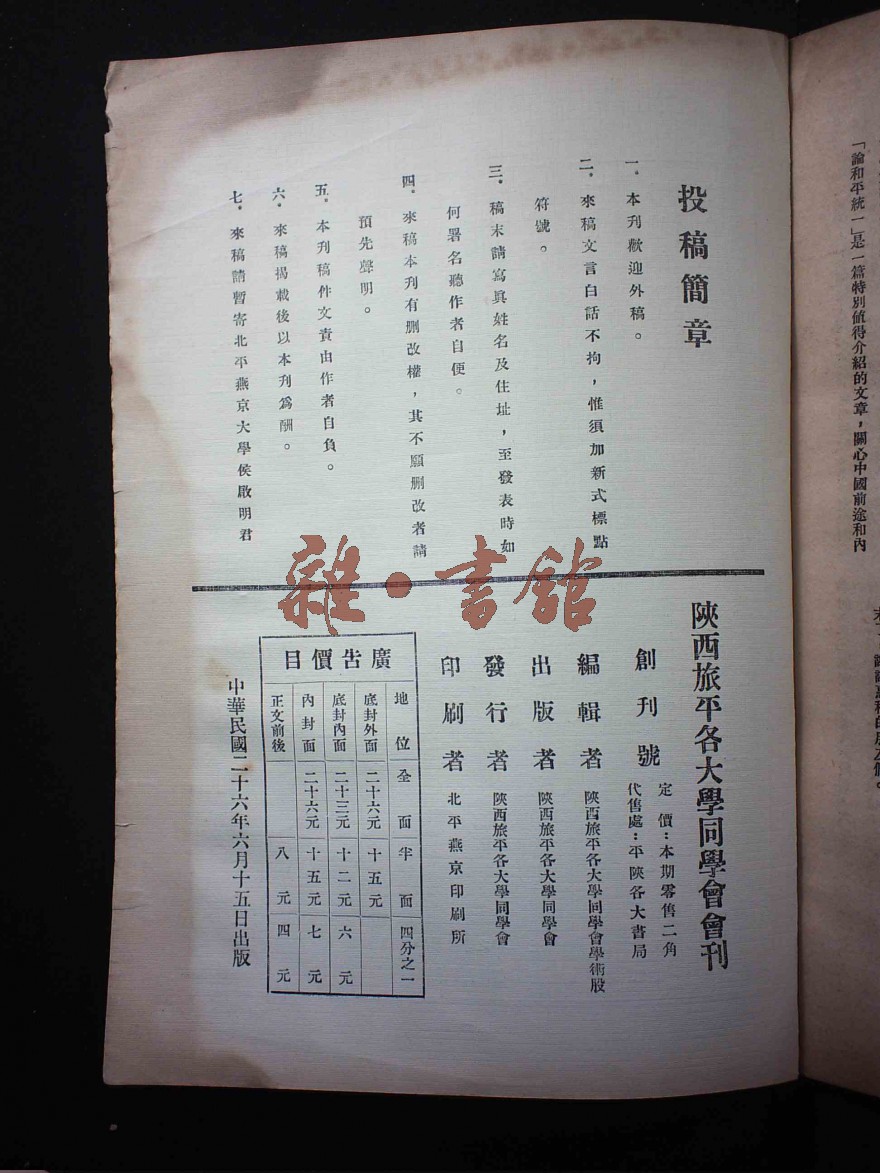 「論和平統一」是一篇特別値得介紹的文章，關心中國前途和內
投稿簡章
一．本刋歡迎外稿。
二．來稿文言白話不拘，惟須加新式標點
符號。
三．稿末請寫眞姓名及住址，至發表時如
何署名聽作者自便。
四．來稿本刋有删改權，其不願删改者請
預先聲明。
五．本刋稿件文責由作者自負。
六．來稿揭載後以本刋爲酬。
七．來稿請暫寄北平燕京大學侯啟明君
雜·書館
陝西旅平各大學同學會會刊
創刊號
定　價：本期零售二角
代售處：平陝各大書局
編輯者　陝西旅平各大學同學會學術股
出版者　陝西旅平各大學同學會
發行者　陝西旅平各大學同學會
印刷者　北平燕京印刷所
廣告價目
地位　全面　半面　四分之一
底封外面　二十六元　十五元
底封內面　二十三元　十二元　六元
內封面　二十六元　十五元　七元
正文前後　八元　四元
中華民國二十六年六月十五日出版